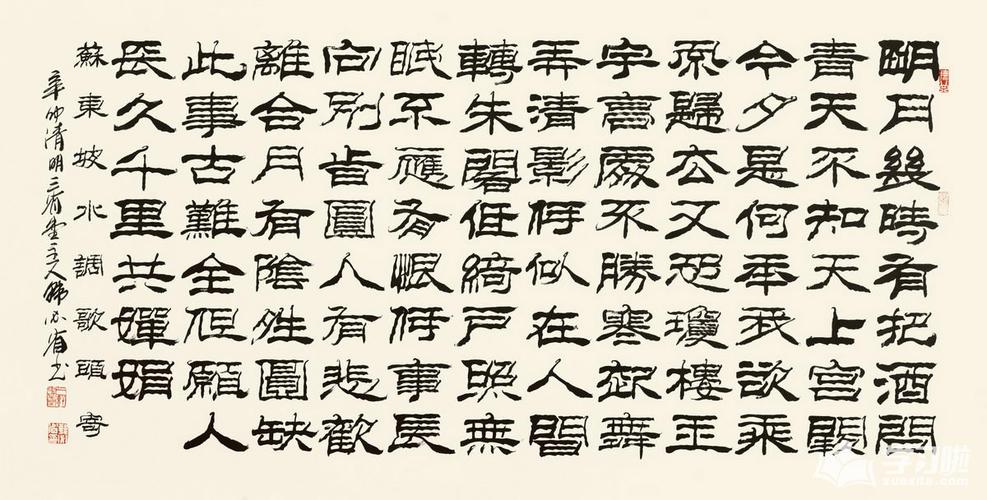 明月幾時有把酒問
青天不知天上宮闕
今夕是何年我欲乘
風歸去又恐瓊樓玉
宇高處不勝寒起舞
弄清影何似在人間
轉朱閣低綺戶照無
眠不應有恨何事長
向別皆圓人有悲歡
離合月有陰晴圓缺
此事古難全但願人
長久千里共嬋娟
蘇東坡水調歌頭寄
辛卯清明三省堂主人書
学习啦
xuexila.com